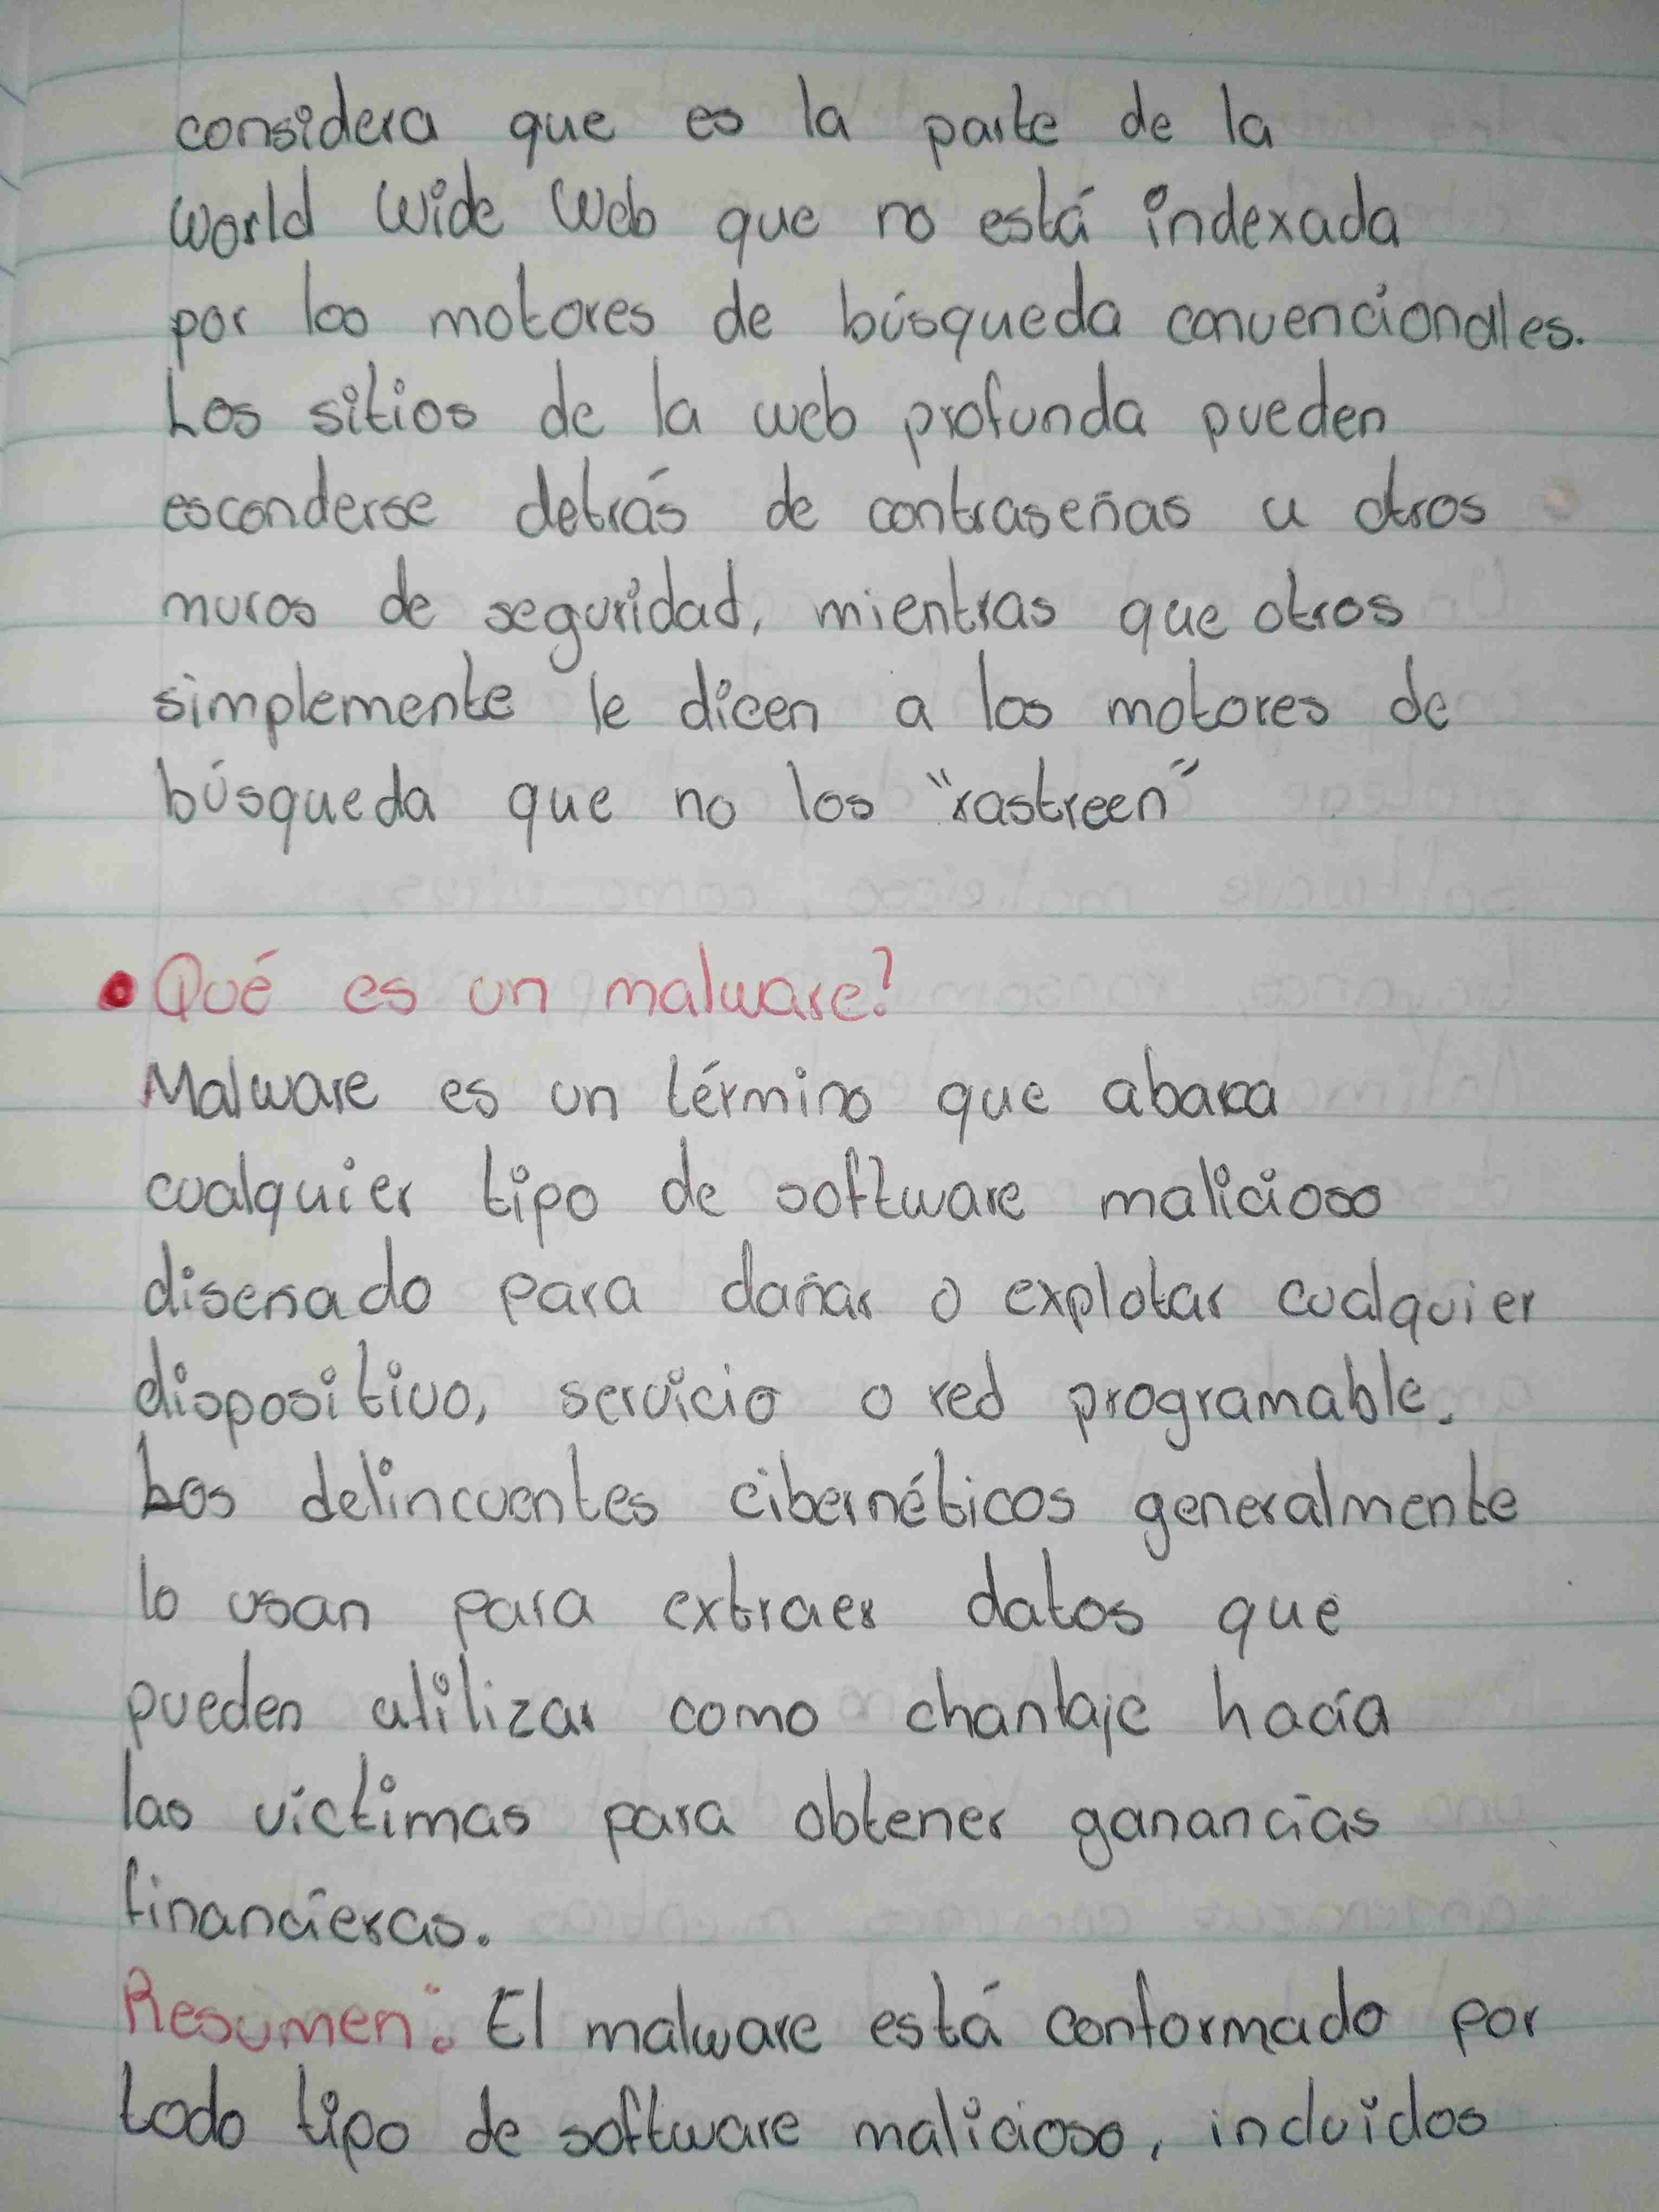 considera que es la parte de la
World Wide Web que no está indexada
por los motores de búsqueda convencionales.
Los sitios de la web profunda pueden
esconderse detrás de contraseñas u otros
muros de seguridad, mientras que otros
simplemente le dicen a los motores de
búsqueda que no los "rastreen"
• Qué es un malware?
Malware es un término que abarca
cualquier tipo de software malicioso
diseñado para dañar o explotar cualquier
dispositivo, servicio o red programable.
Los delincuentes cibernéticos generalmente
lo usan para extraer datos que
pueden utilizar como chantaje hacía
las víctimas para obtener ganancias
financieras.
Resumen: El malware está conformado por
todo tipo de software malicioso, incluidos